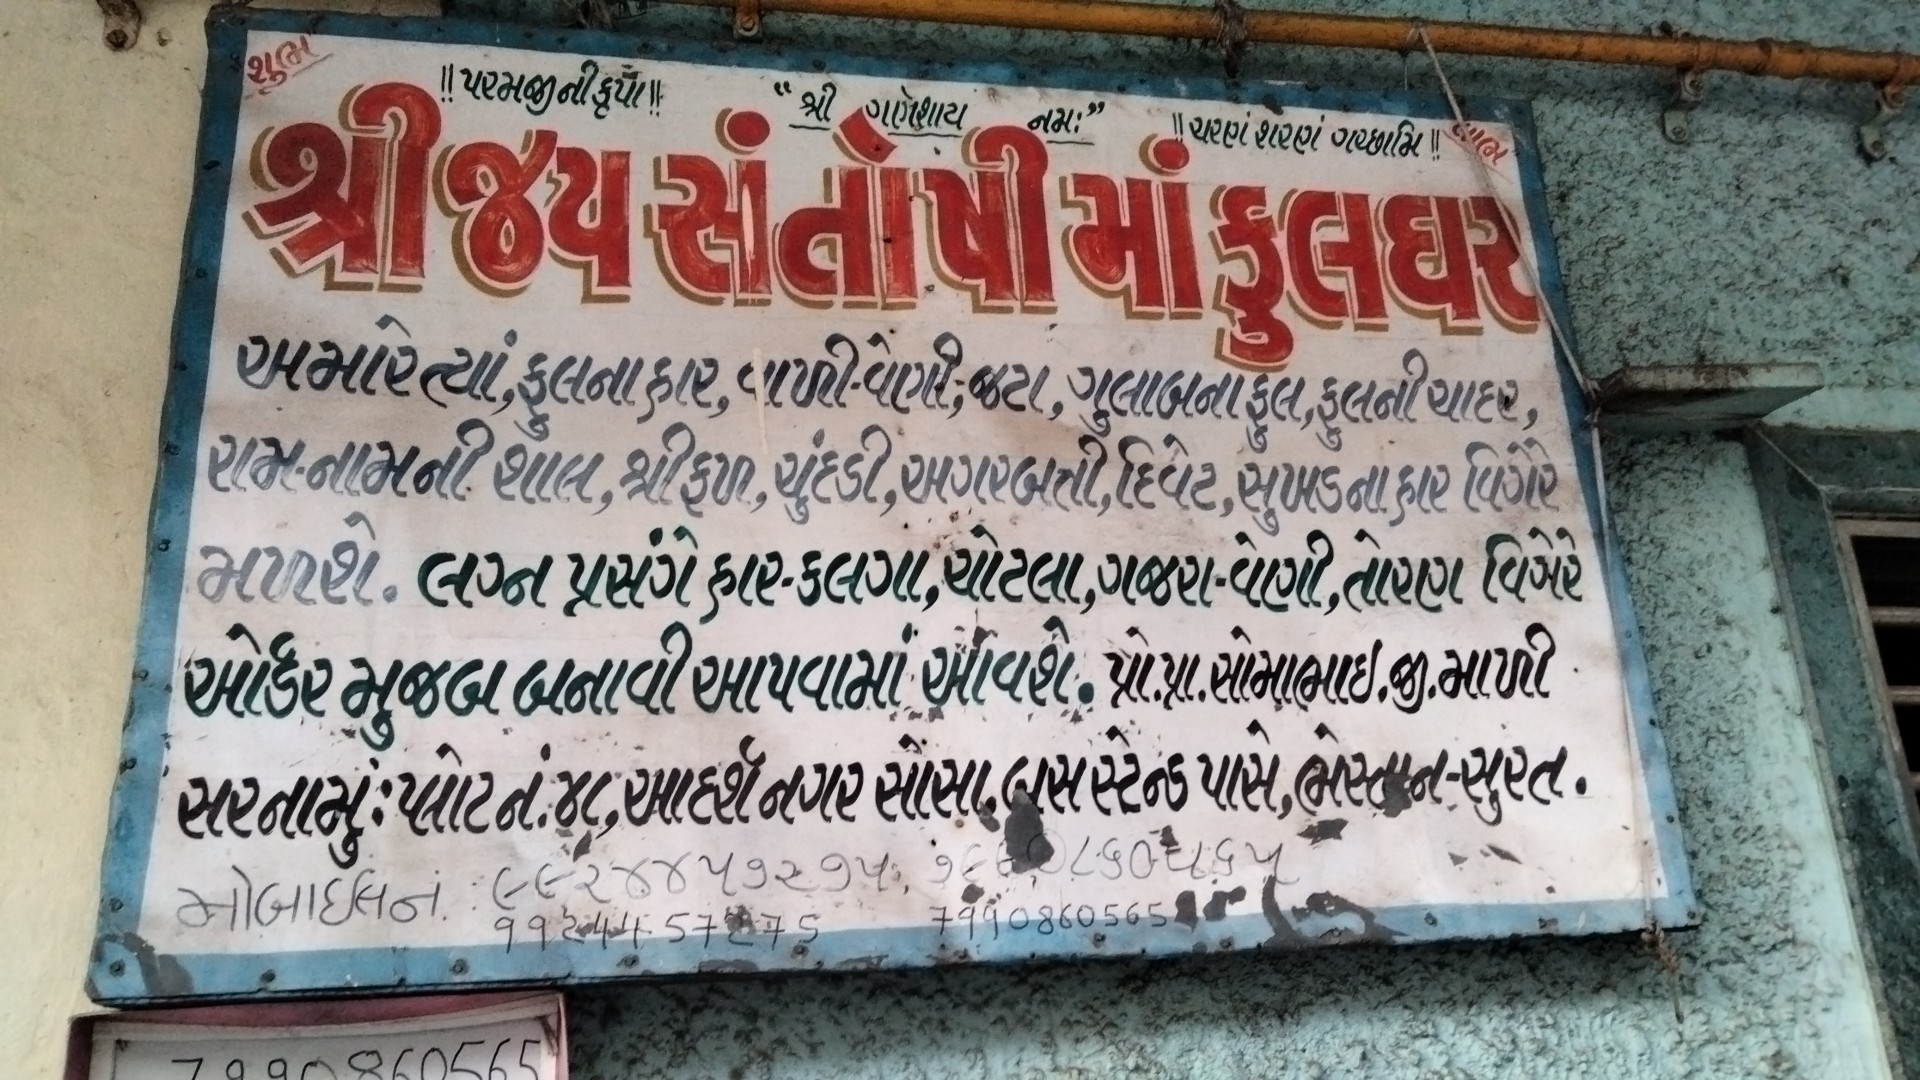 શુભ
લાભ
॥ પરમજીની કૃપા ॥ “ શ્રી ગણેશાય નમઃ ” ॥ ચરણં શરણં ગચ્છામિ ॥
શ્રી જય સંતોષી માં ફુલઘર
અમારે ત્યાં, ફુલના હાર, વાળી-વેણી, જટા, ગુલાબના ફુલ, ફુલની ચાદર,
રામ-નામની શાલ, શ્રીફળ, ચુંદડી, અગરબત્તી, દિવેટ, સુખડના હાર વિગેરે
મળશે. લગ્ન પ્રસંગે હાર-કલગા, ચોટલા, ગજરા-વેણી, તોરણ વિગેરે
ઓર્ડર મુજબ બનાવી આપવામાં આવશે. પ્રો.પ્રા. સોમાભાઇ.જી.માળી
સરનામું: પ્લોટ નં. ૪૮, આદર્શ નગર સોસા. બસ સ્ટેન્ડ પાસે, ભેસ્તાન-સુરત.
મોબાઈલ નં. : ૯૯૨૪૪૫૭૨૭૫,
9924457275 7990860565
7990860565